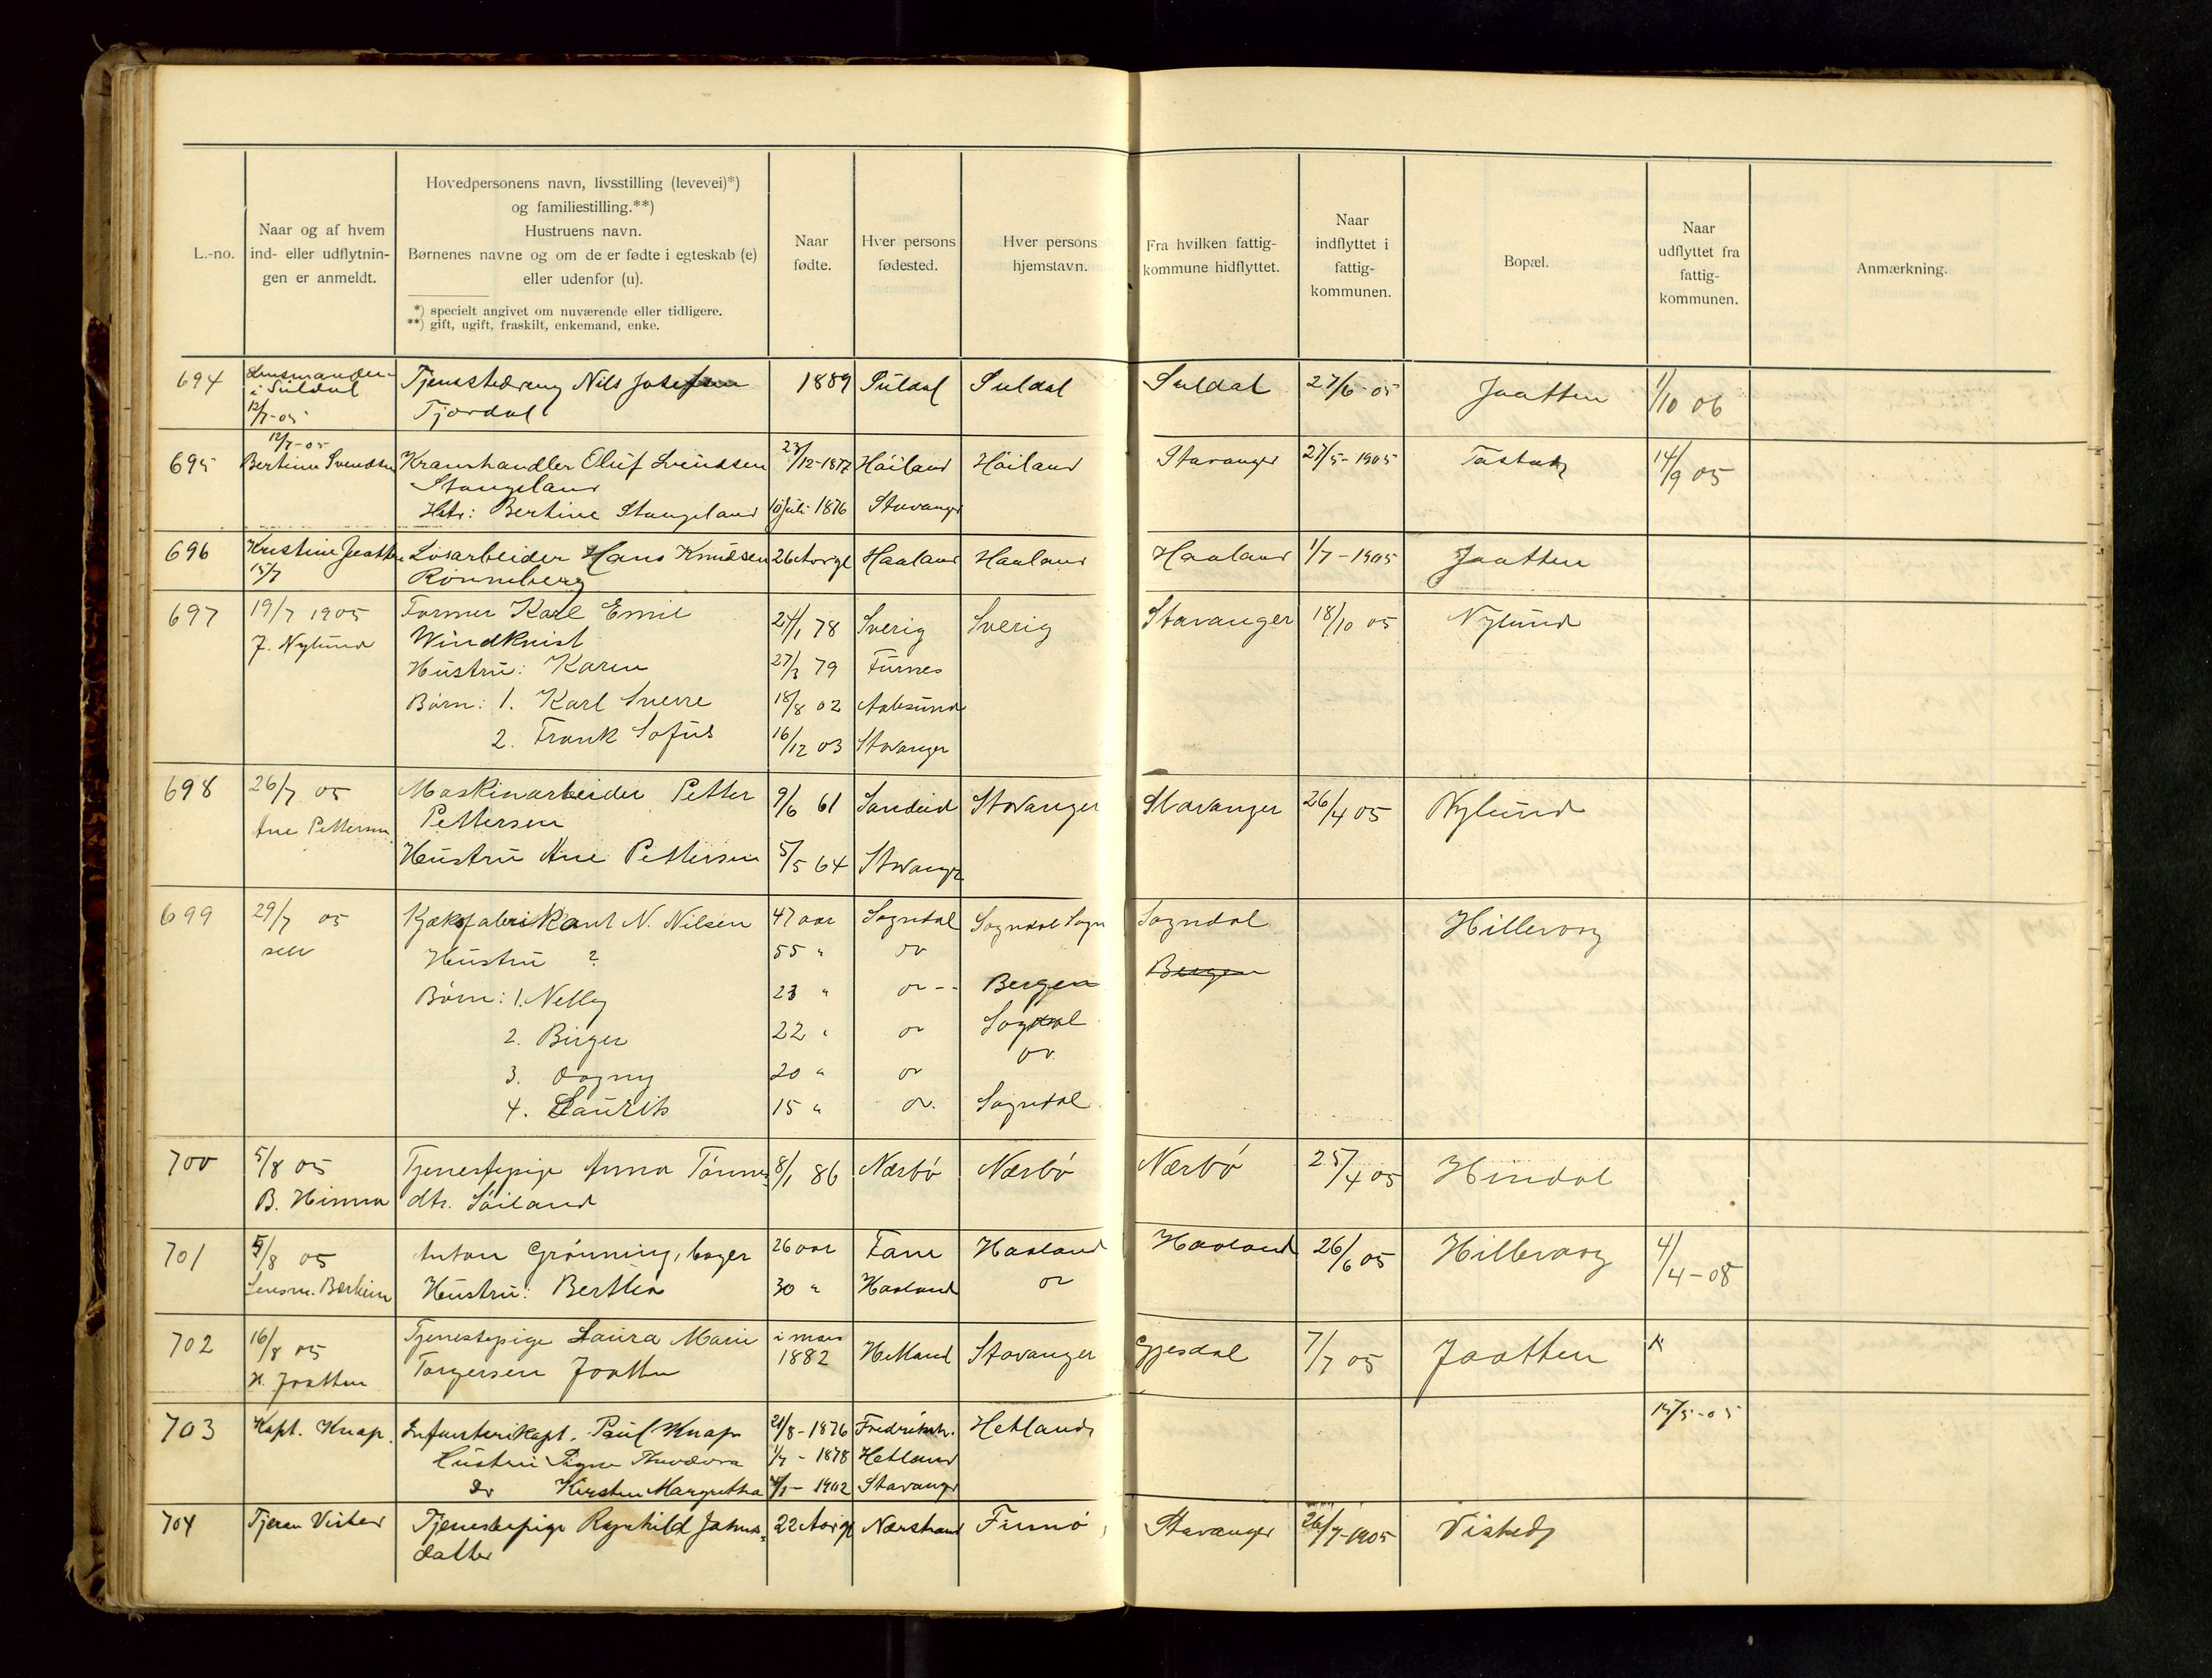 L.-no.
Naar og af hvem
ind- eller udflytnin-
gen er anmeldt.
Hovedpersonens navn, livsstilling (levevei)*)
og familiestilling.**)
Hustruens navn.
Børnenes navne og om de er fødte i egteskab (e)
eller udenfor (u).
*) specielt angivet om nuværende eller tidligere.
**) gift, ugift, fraskilt, enkemand, enke.
Naar
fødte.
Hver persons
fødested.
Hver persons
hjemstavn.
Fra hvilken fattig-
kommune hidflyttet.
Naar
indflyttet i
fattig-
kommunen.
Bopæl.
Naar
udflyttet fra
fattig-
kommunen.
Anmærkning.
694 Lensmanden Tjenestedreng Nils Josefsen 1889 Suldal Suldal Suldal 27/6-05 Jaatten 1/10 06
i Suldal Tjordal
12/7-05
12/7-05
695 Bertine Svendsen Kramhandler Oluf Svendsen 23/12-1877 Høiland Høiland Stavanger 27/5-1905 Tasta 14/9 05
Stangeland
Hstr: Bertine Stangeland 10 juli 1876 Stavanger
696 Kristine Jaatten Løsarbeider Hans Knudsen 26 Aar gl Haaland Haaland Haaland 1/7-1905 Jaatten
15/7 Rønneberg
697 19/7 1905 Former Karl Emil 24/1 78 Sverig Sverig Stavanger 18/10 05 Nylund
J. Nylund Windkvist
Hustru: Karen 27/3 79 Furnes
Børn: 1. Karl Sverre 18/8 02 Aalesund
2. Frank Sofus 16/12 03 Stavanger
698 26/7 05 Maskinarbeider Petter 9/6 61 Sandeid Stavanger Stavanger 26/4 05 Nylund
Ane Pettersen Pettersen
Hustru Ane Pettersen 5/5 64 Stavanger
699 29/7 05 Kjæksfabrikant N. Nilsen 47 aar Sogndal Sogndal Sogn Sogndal Hillevaag
selv Hustru ? 55 " do Bergen
Børn: 1. Nelly 23 " do -- Bergen
2. Birger 22 " do Sogndal
3. Dagny 20 " do do
4. Laurits 15 " do. Sogndal
700 5/8 05 Tjenestepige Anna Tønnes- 8/1 86 Nærbø Nærbø Nærbø 25/4 05 Hindal
B. Hinna dtr. Søiland
701 5/8 05 Anton Grønning, bager 26 aar Fane Haaland Haaland 26/6 05 Hillevaag 4/4-08
Lensm. Bærheim Hustru: Bertha 30 " Haaland do
702 16/8 05 Tjenestepige Laura Marie i mars Hetland Stavanger Gjesdal 7/7 05 Jaatten
H. Jaatten Torgersen Jaatten 1882
703 Kapt. Knap. Infanterikapt. Paul Knap 21/8-1876 Fredriksh. Hetland 15/5-05
Hustru Signe Theodora 1/7-1878 Hetland
Dr Kirsten Margretha 4/1-1902 Stavanger
704 Tjeran Visted Tjenestepige Ragnhild Jahns- 22 Aar gl Nærstrand Finnø Stavanger 26/7-1905 Visted
datter